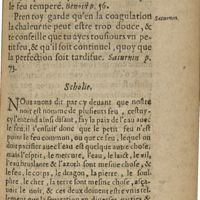 le feu temperé. Benoist p. 56.
Pren toy garde qu'en la coagulation
la chaleur ne peut estre trop douce, &
te conseille que tu ayes tousiours vn pe-
tit feu, & qu'il soit continuel, quoy que
la perfection soit tardifue. Saturnin p.
73.
Saturnin.
Scholie.
NOus auons dit par cy deuant que nostre
noir est nommé de plusieurs feu, cestuy-
cy l'entend ainsi disant, fay la paix de l'eau auec
le feu: il s'ensuit donc que le petit feu n'est
point le feu commun, ou que ce feu, lequel on
doit pacifier auec l'eau est quelque autre chose,
mais l'esprit, le mercure, l'eau, le laict, le vif,
l'eau bruslante & l'azoth sont mesme chose, &
le feu, le corps, le dragon, la pierre, le soul-
phre, le cher, la terre sont mesme chose, asça-
uoir le noir, & ces deux doiuent estre vni